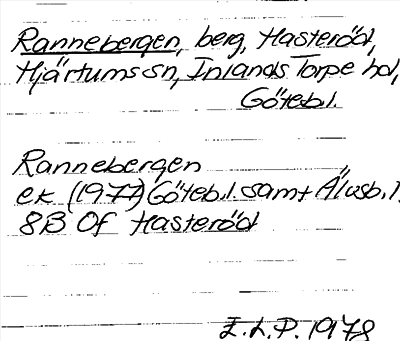 Rannebergen, berg, Hasteröd,
Hjärtums sn, Inlands Torpe hd,
Götebl.
Rannebergen
ek (1977) Göteb.l. samt Älvsb.l.
8B 0f Hasteröd
E.L.P. 1978